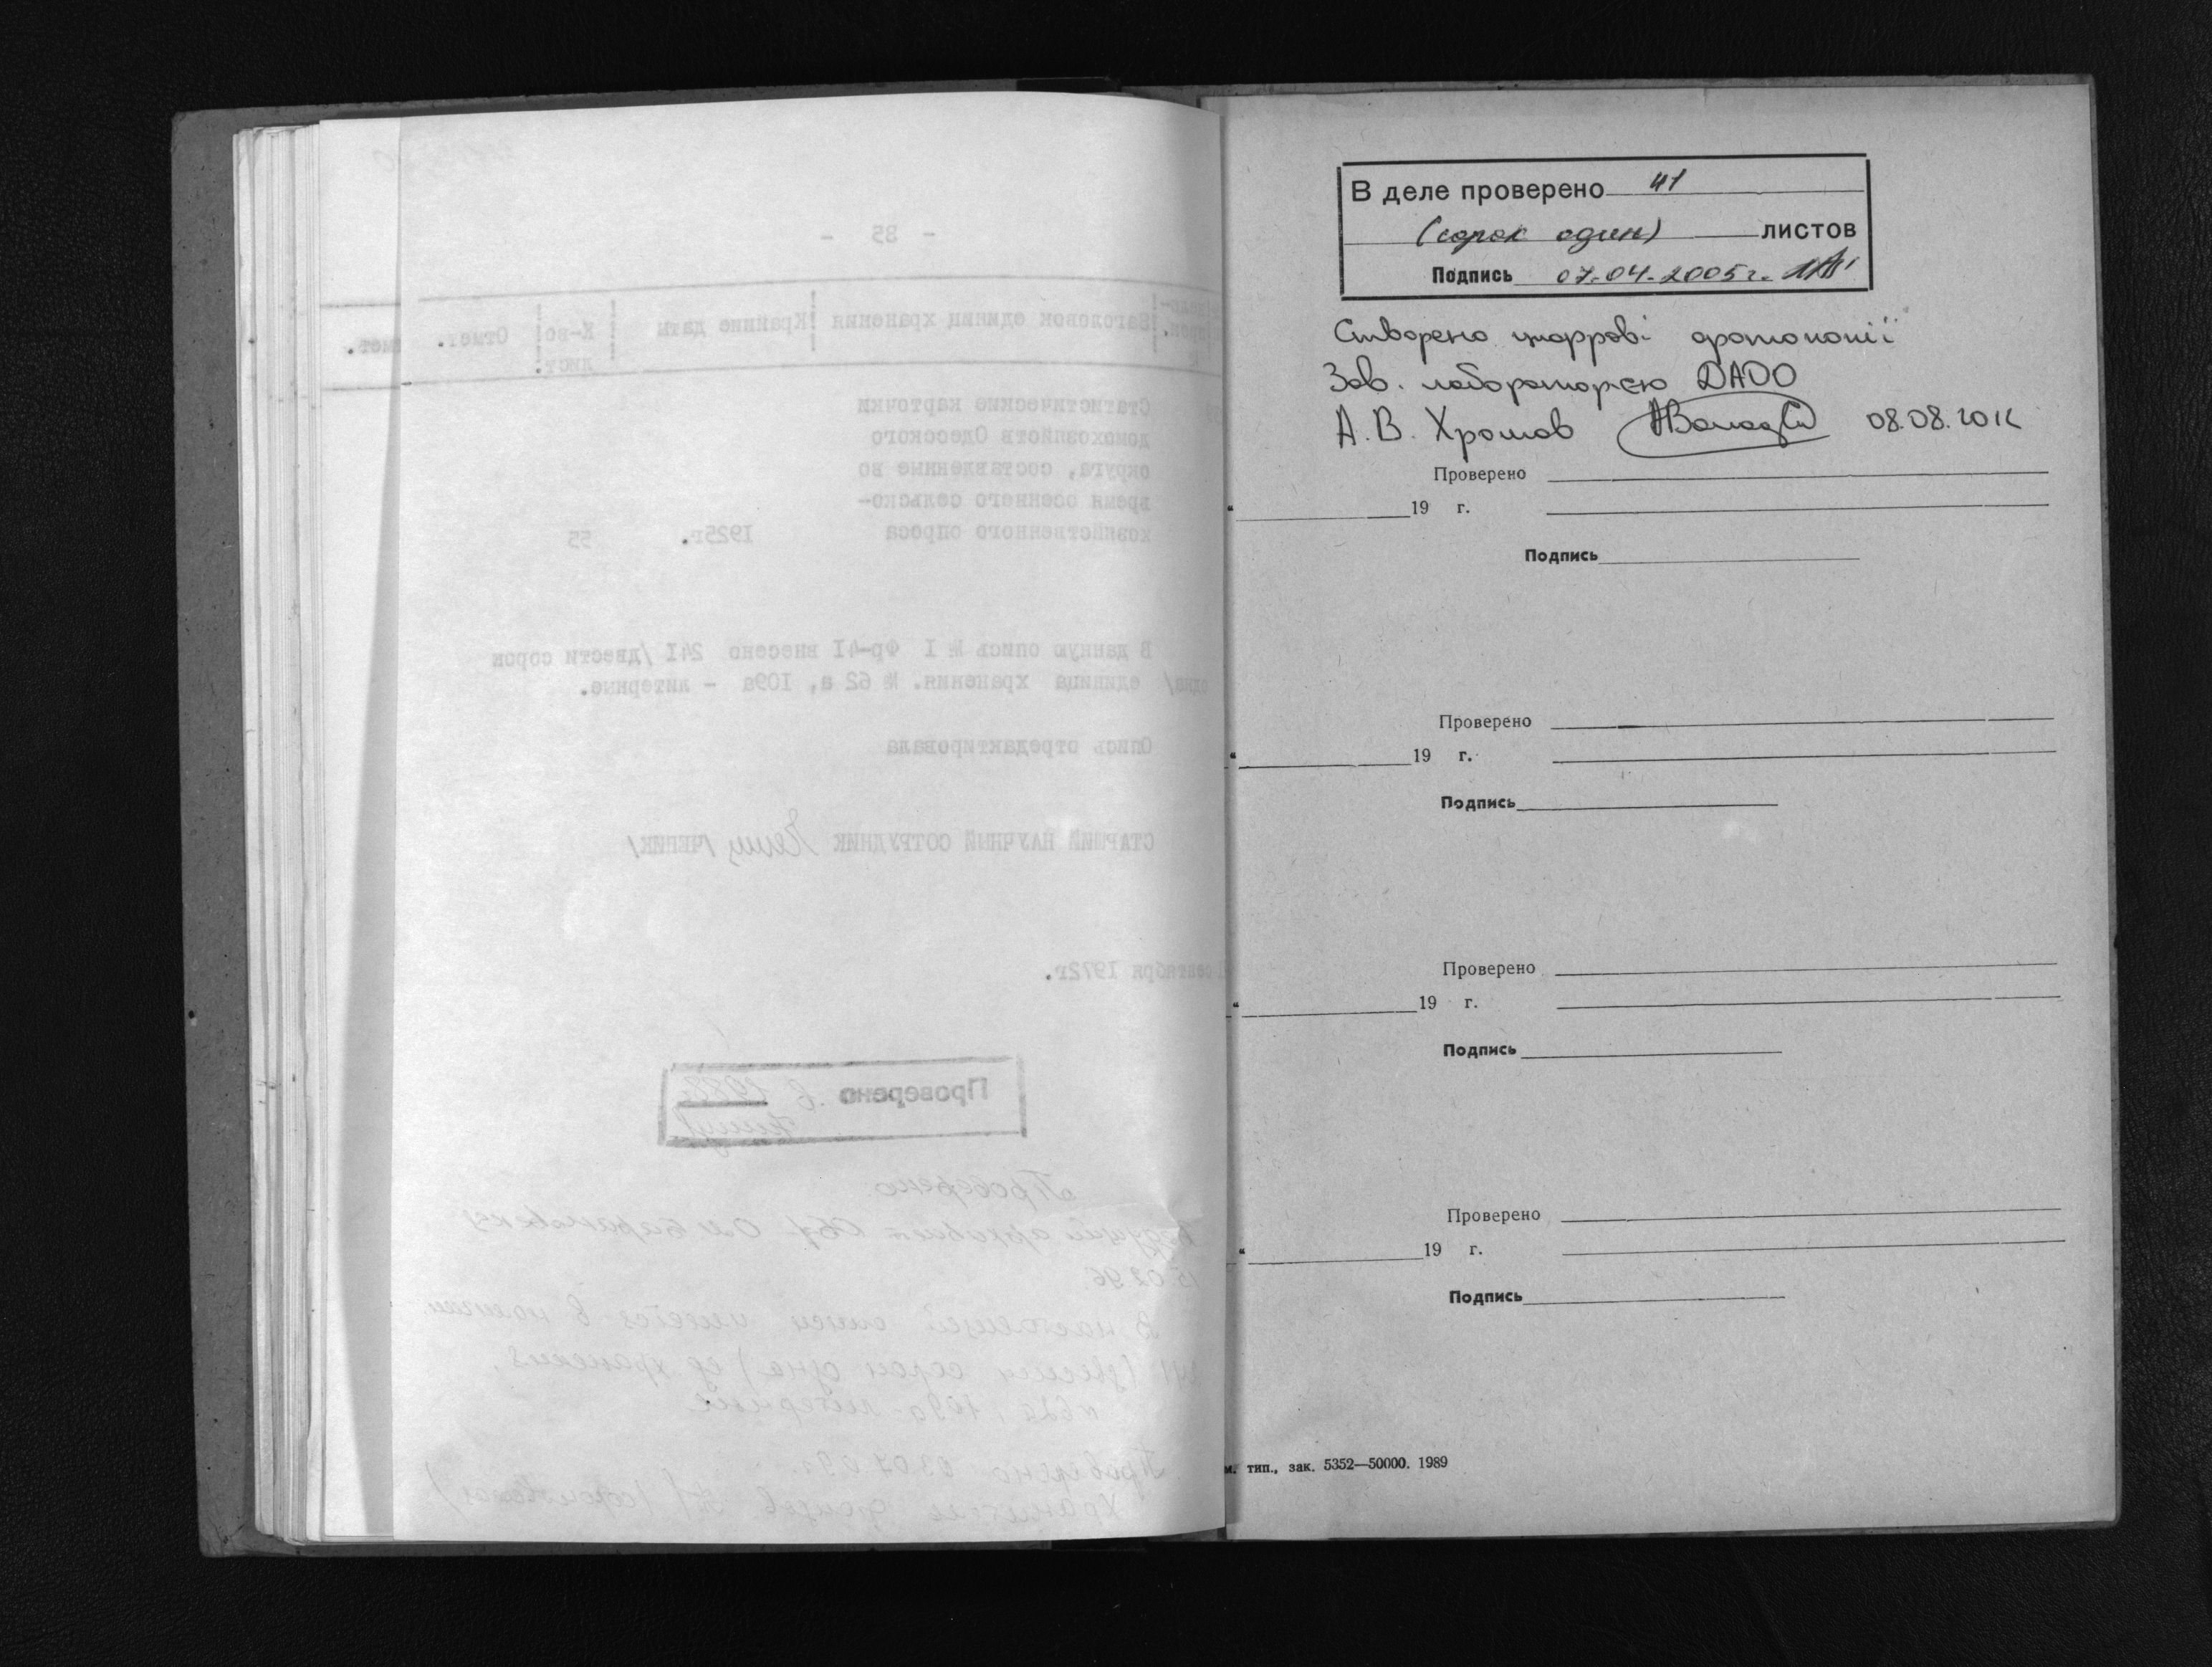 - 35 -
Заголовок единиц хранения
Крайние даты
К-во
лист.
Отмет.
Статистические карточки
домохозяйств Одесского
округа, составленные во
время осеннего сельско-
хозяйственного опроса 1925г. 55
В данную опись № I Фр-4I внесено 24I /двести сорок
одна/ единица хранения. № 62 а, I09а - литерные.
Опись отредактировала
СТАРШИЙ НАУЧНЫЙ СОТРУДНИК /ЧЕПИК/
сентября I972г.
Проверено
Проверено
Ведущий архивист
15.02.96
В настоящей описи имеется в наличии
241 (двести сорок одна) ед хранения,
№62а, 109а - литерные
Проверено 03.07.09г.
Хранитель фондов
В деле проверено 41
(сорок один) листов
Подпись 07-04-2005г.
Створено цифрові фотокопії
Зав. лабораторією ДАОО
А.В. Хромов 08.08.2012
Проверено
" 19 г.
Подпись
Проверено
" 19 г.
Подпись
Проверено
" 19 г.
Подпись
Проверено
" 19 г.
Подпись
тип., зак. 5352—50000. 1989